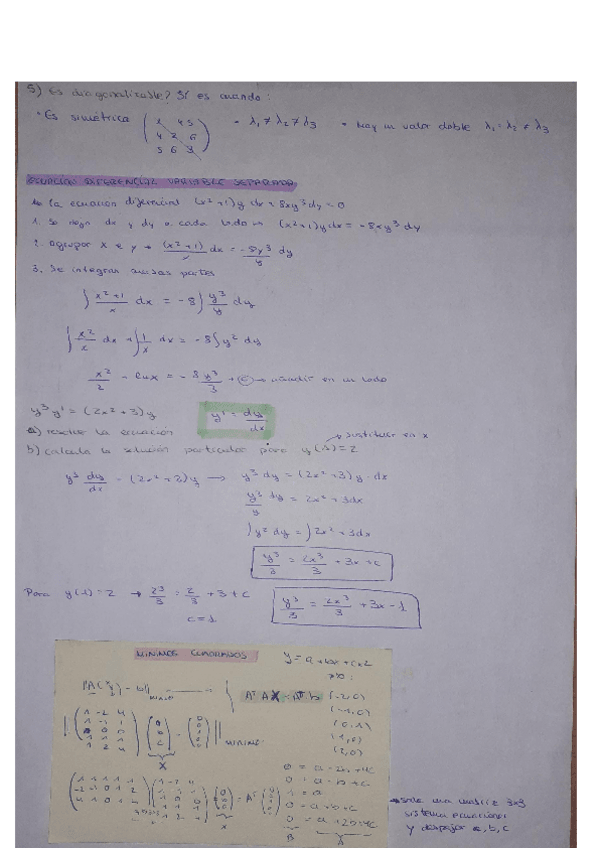 5) Es diagonalizable? Sí es cuando:
• Es simétrica (1 4 5 / 4 2 6 / 5 6 3) • λ1 ≠ λ2 ≠ λ3 • Hay un valor doble λ1 = λ2 ≠ λ3
ECUACIÓN DIFERENCIAL VARIABLE SEPARADA
la ecuación diferencial (x²+1)y dx + 8xy³dy = 0
1. Se deja dx y dy a cada lado → (x²+1)y dx = -8xy³ dy
2. Agrupar x e y → (x²+1)/x dx = -8y³/y dy
3. Se integran ambas partes
∫ (x²+1)/x dx = -8∫ y³/y dy
∫ x²/x dx + ∫ 1/x dx = -8∫ y² dy
x²/2 - lnx = -8 y³/3 + C → añadir en un lado
y³y' = (2x²+3)y y' = dy/dx
a) resolver la ecuación
sustituir en x
b) calcula la solución particular para y(1)=2
y³ dy/dx = (2x²+3)y → y³dy = (2x²+3)y·dx
y³/y dy = 2x²+3dx
∫y²dy = ∫2x²+3dx
y³/3 = 2x³/3 + 3x + c
Para y(1)=2 → 2³/3 = 2/3 + 3 + c
c=1
y³/3 = 2x³/3 + 3x - 1
MINIMOS CUADRADOS y = a+bx+cx2
AᵀAX = Aᵀb (-2,0)
(-1,0)
(0,1)
(1,0)
(2,0)
X
0 = a-2b+4c
0 = a-b+c
1 = a
0 = a+b+c
0 = a+2b+4c
B A
→ sale una matriz 3x3
sistema ecuaciones
y despejar a, b, c